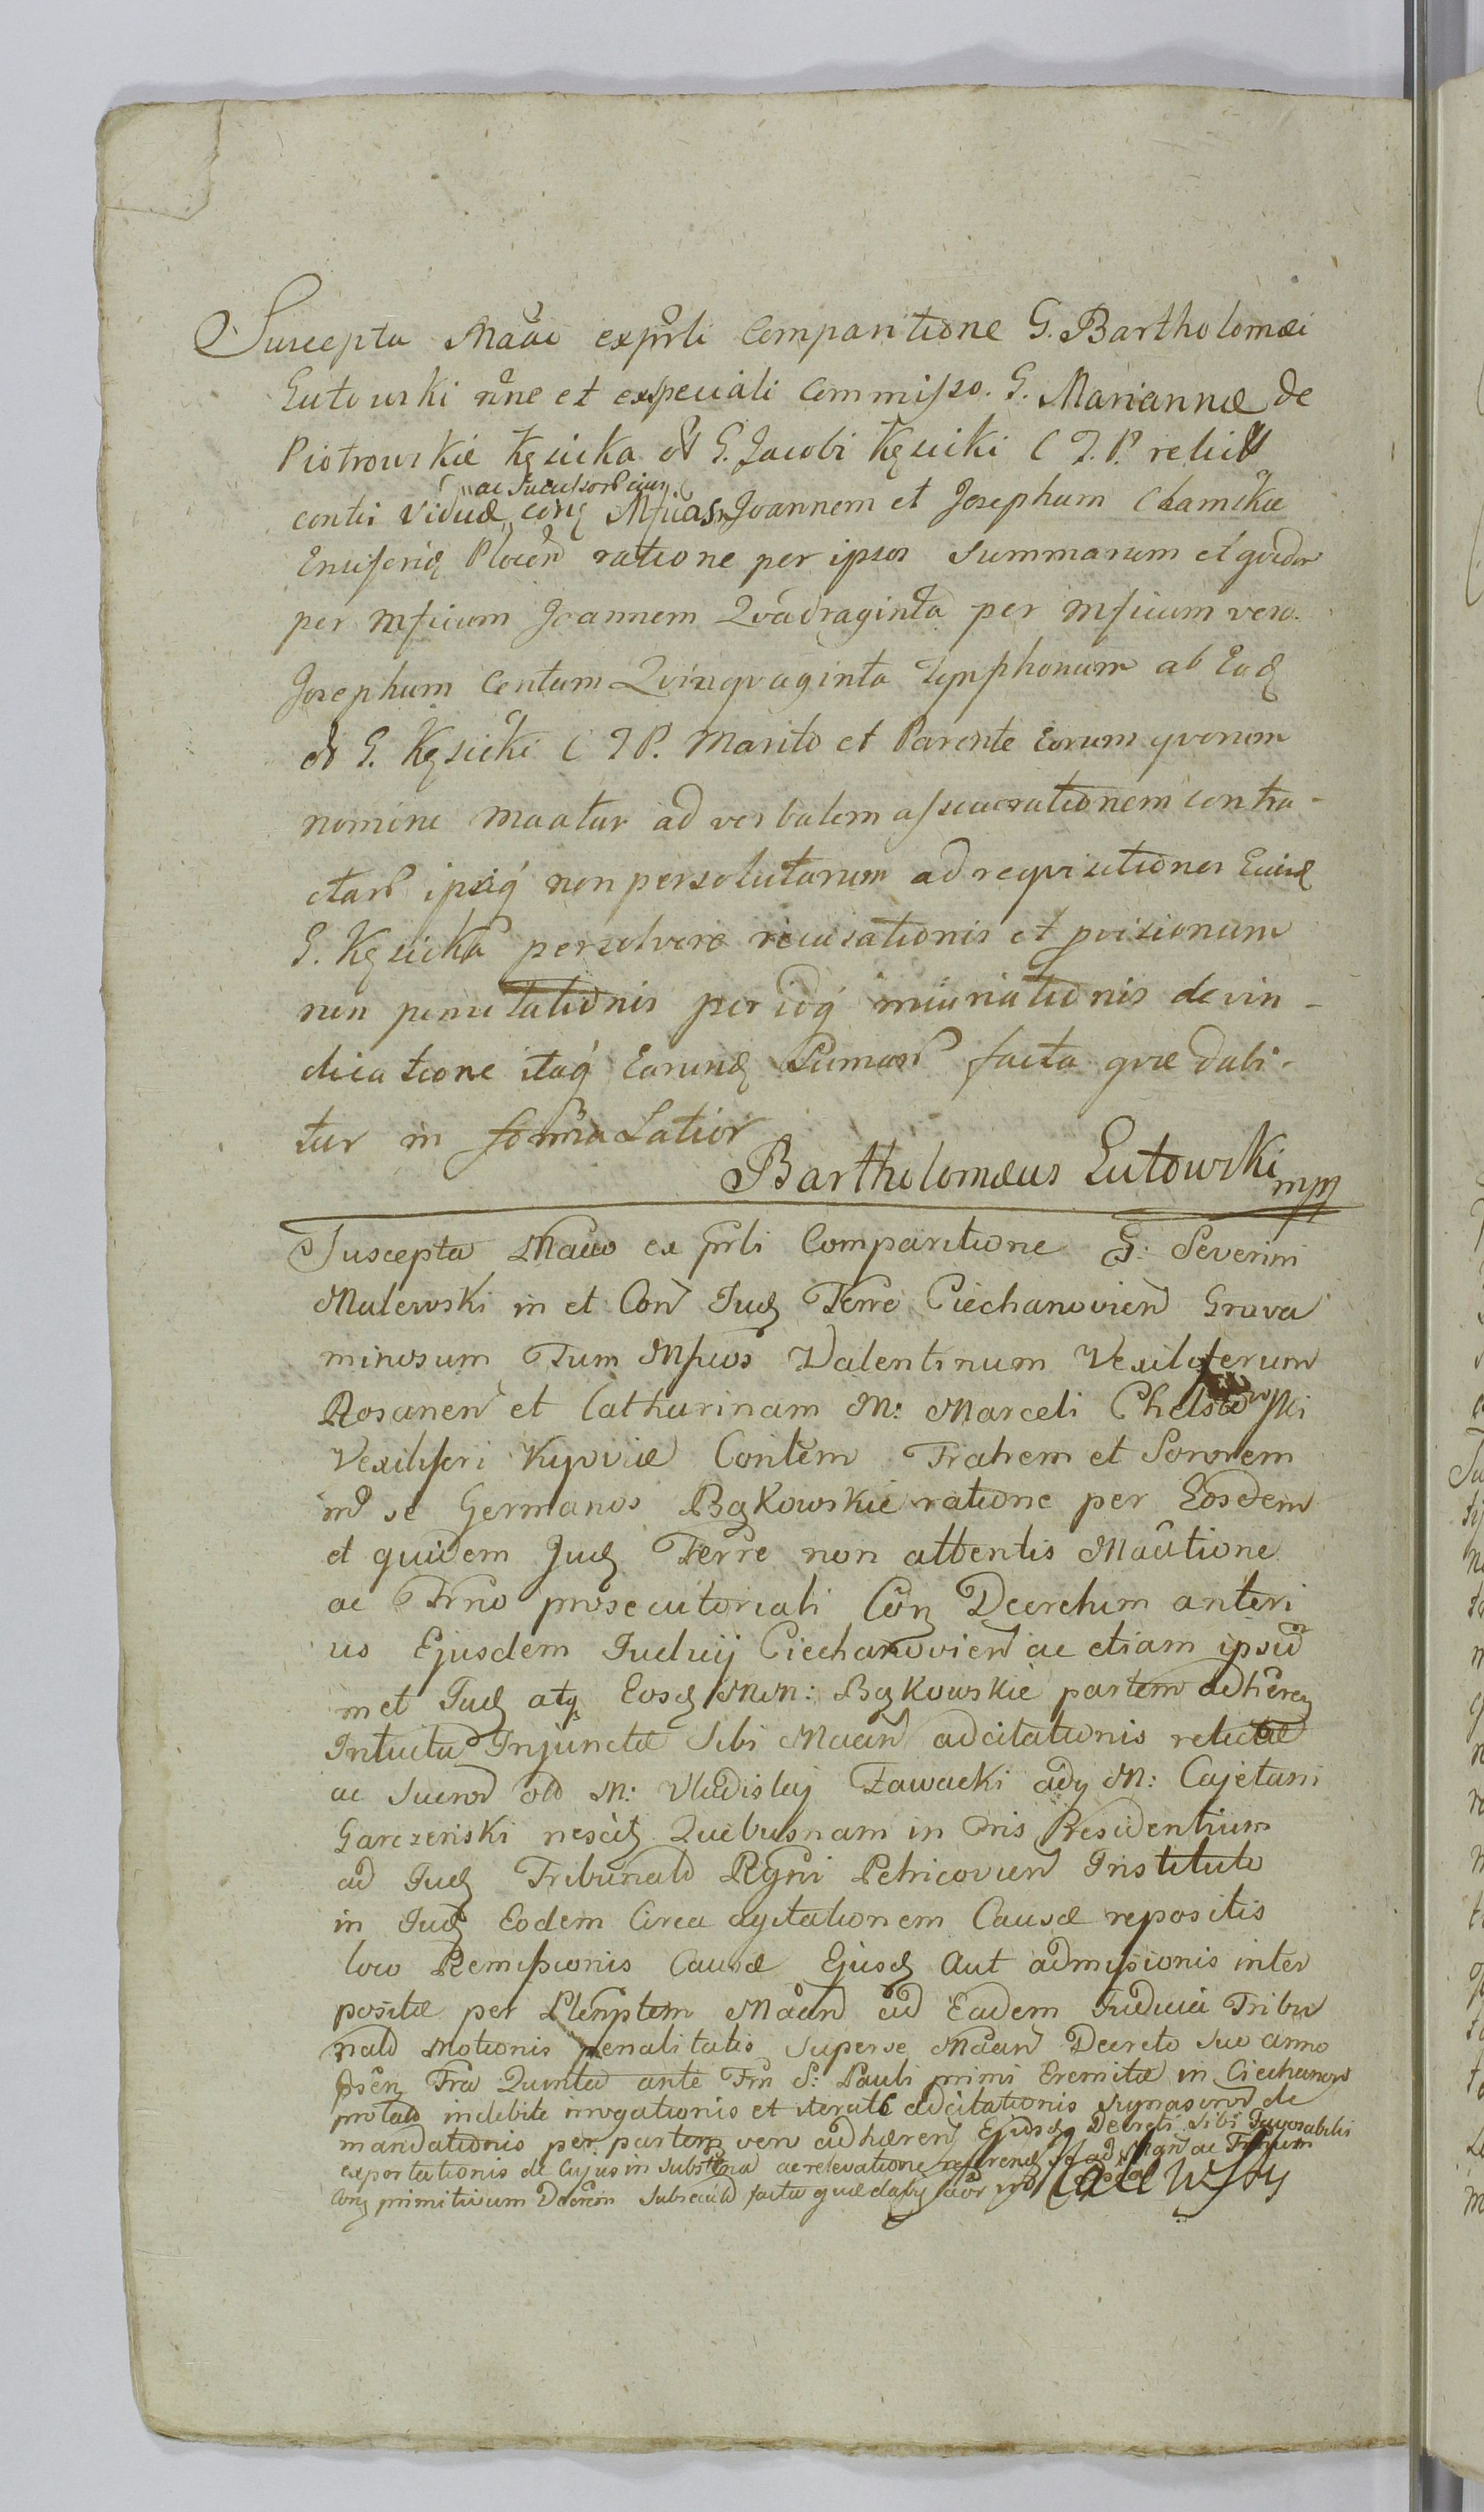 Suscepta Maãe exprli Comparitione G. Bartholomæi
Lutowski nne et expeciali Commisso. G. Mariannæ de
Piotrowskie Kęsicka G. Jacobi Kęsicki C T. P. relictæ
ac Successorũ ejus
contis Viduæ conę Mficos Joannem et Josephum Chamskie
Ensiferię Plocen ratione per ipsos Summarum et qvidem
per Mficum Joannem Qvadraginta per Mficum vero.
Josephum Centum Qvinqvaginta Tynphonum ab Eod
G. Kęsicki C T P. Marito et Parente Eorum qvorum
nomine maatur ad verbalem assecurationem contra-
ctarũ ipsiq non persolutarum ad reqvisitiones Eiusd
G. Kęsicka persolvere recusationis et pvisionum
non pensitationis per idq iniuriationis devin-
dicatione itaq Earund Sumarũ facta qvæ dabi-
tur in forma Latior
Bartholomæus Lutowski mpp
Suscepta Maão ex prli Comparitione G: Severini
Malewski in et Con Jud Terre Ciechanovien Grava
minosum Tum Mficos Valentinum Vexiliferum
Rosanen et Catharinam M: Marceli Chelstowski
Vexiliferi Kyoviæ Contem Fratrem et Sororem
inr se Germanos Bąkowskie ratione per Eosdem
et quidem Jud Terre non attentis Maãtione
ac Trno prosecutoriali Con Decretum anteri
us Ejusdem Judicij Ciechanovien ac etiam ipsid
met Jud atq Eosd MM: Bąkowskie partem adhæren
Intuitu Injunctæ Sibi Maan adcitationis relictæ
ac Sucrod old M: Vladislaj Zawacki adq M: Cajetani
Garczenski nescit Quibusnam in Oris Presidentium
ad Jud Tribunald Regni Petricovien Instituto
in Jud Eodem Circa agitationem Causæ repositis
loco Remissionis Causæ Ejusd Aut admissionis inter
positæ per Plenptem Maan ad Eadem Judicia Tribu
nald Motionis penalitatis Superse Maan Decreto Suo anno
psen Fra Quinta ante Frn S: Pauli primi Eremitæ in Ciechanow
prolato indebite irrogationis et iterato adcitationis
mandationis per partem vero adhæren Ejusd Decreti Sibi Favorabilis
exportationis de Cujus in Substtia ac relevatione referend
Conq primitivum Decretum Subsecuto facta quæ
Malewski